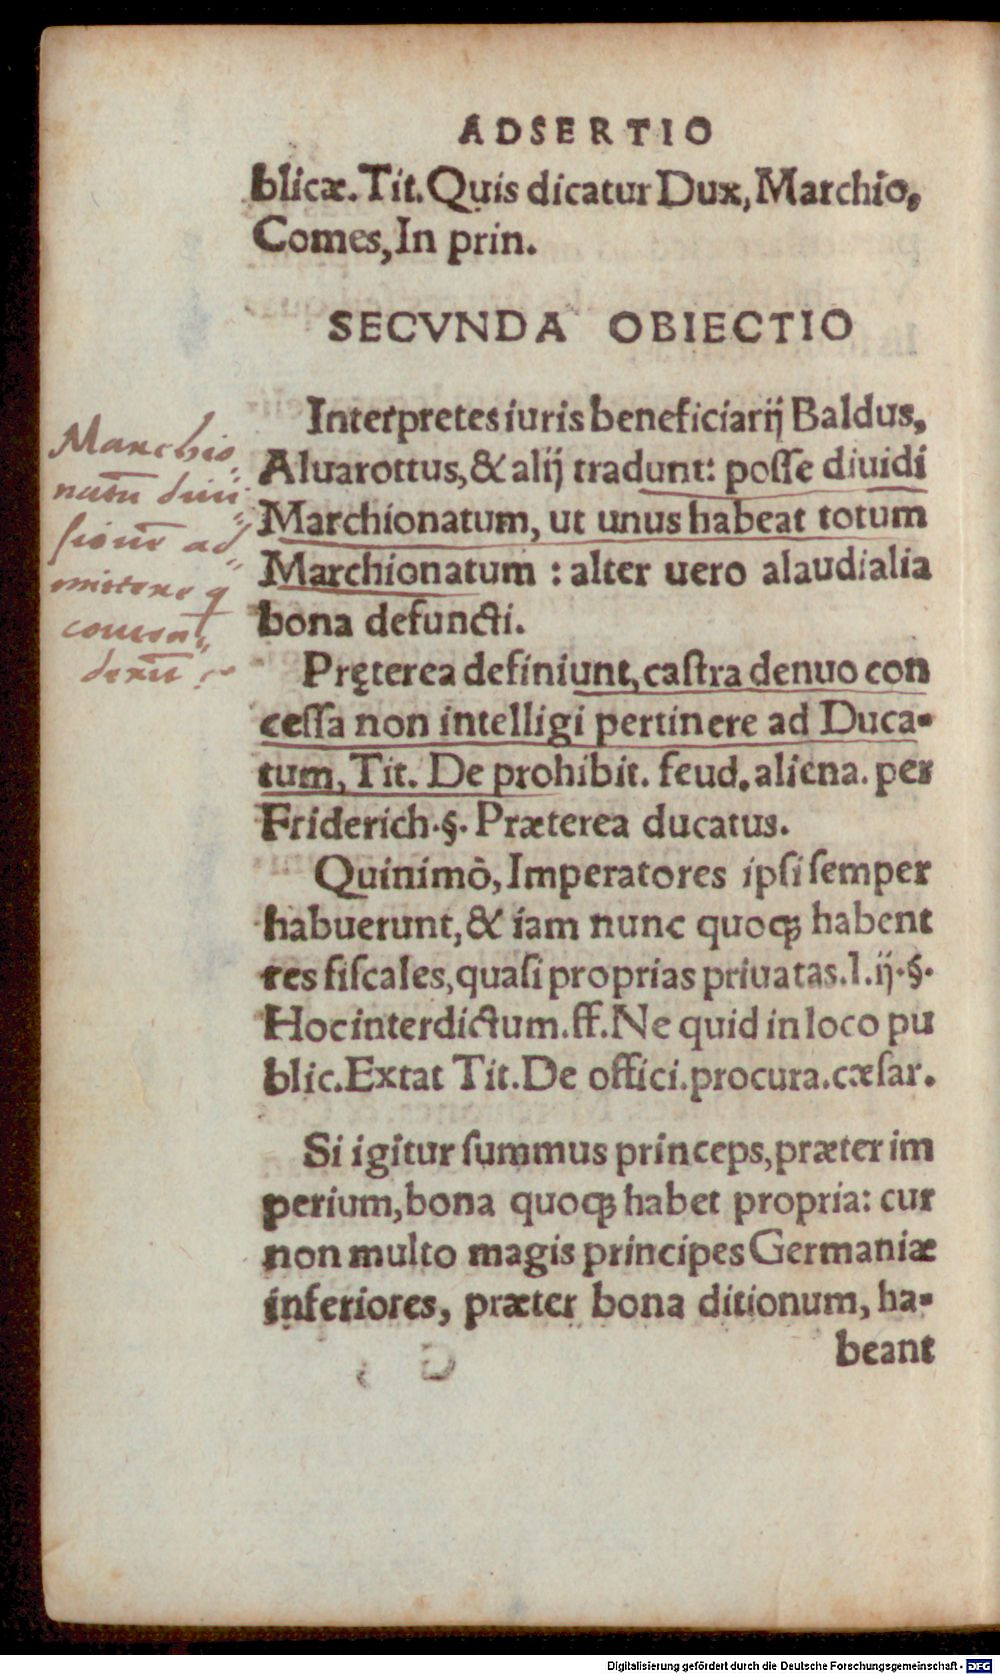 ADSERTIO
blicæ. Tit. Quis dicatur Dux, Marchio,
Comes, In prin.
SECVNDA OBIECTIO
Interpretes iuris beneficiarij Baldus,
Aluarottus, & alij tradunt: posse diuidi
Marchionatum, ut unus habeat totum
Marchionatum : alter uero alaudialia
bona defuncti.
Pręterea definiunt, castra denuo con
cessa non intelligi pertinere ad Duca-
tum, Tit. De prohibit. feud. aliena. per
Friderich. §. Præterea ducatus.
Quinimò, Imperatores ipsi semper
habuerunt, & iam nunc quoqȝ habent
res fiscales, quasi proprias priuatas. l. ij. §.
Hoc interdictum. ff. Ne quid in loco pu
blic. Extat Tit. De offici. procura. cæsar.
Si igitur summus princeps, præter im
perium, bona quoqȝ habet propria: cur
non multo magis principes Germaniæ
inferiores, præter bona ditionum, ha-
beant
Marchio
natū diui
sionē ad
mittere
Digitalisierung gefördert durch die Deutsche Forschungsgemeinschaft - DFG